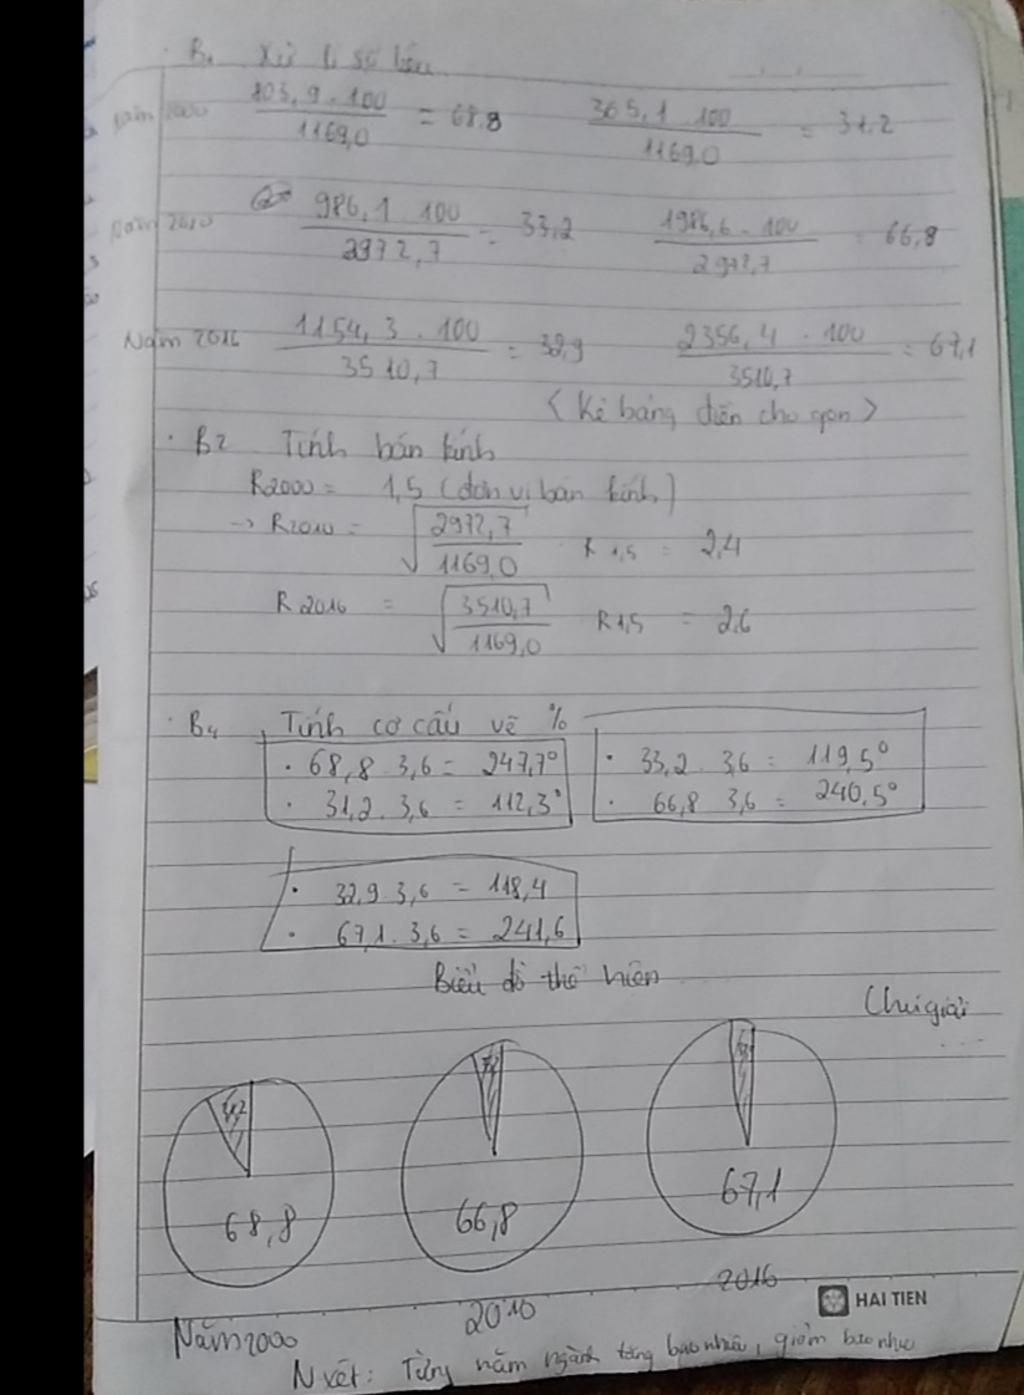 B1 Xử lí số liệu
năm 2000 803,9 . 100 / 1169,0 = 68,8 365,1 . 100 / 1169,0 = 31,2
năm 2010 986,1 100 / 2972,7 = 33,2 1986,6 . 100 / 2972,7 = 66,8
Năm 2016 1154,3 . 100 / 3510,7 = 32,9 2356,4 . 100 / 3510,7 = 67,1
< Kẻ bảng điền cho gọn >
B2 Tính bán kính
R2000 = 1,5 (đơn vị bán kính)
→ R2010 = √2972,7 / 1169,0 R 1,5 = 2,4
R 2016 = √3510,7 / 1169,0 R 1,5 = 2,6
B4 Tính cơ cấu vẽ %
· 68,8 . 3,6 = 247,7° · 33,2 . 3,6 = 119,5°
· 31,2 . 3,6 = 112,3° · 66,8 3,6 = 240,5°
· 32,9 3,6 = 118,4
· 67,1 . 3,6 = 241,6
Biểu đồ thể hiện
Chú giải
31,2
68,8 66,8 67,1
Năm 2000 2010 2016
HAI TIEN
N xét: Từng năm ngành tăng bao nhiêu, giảm bao nhiu